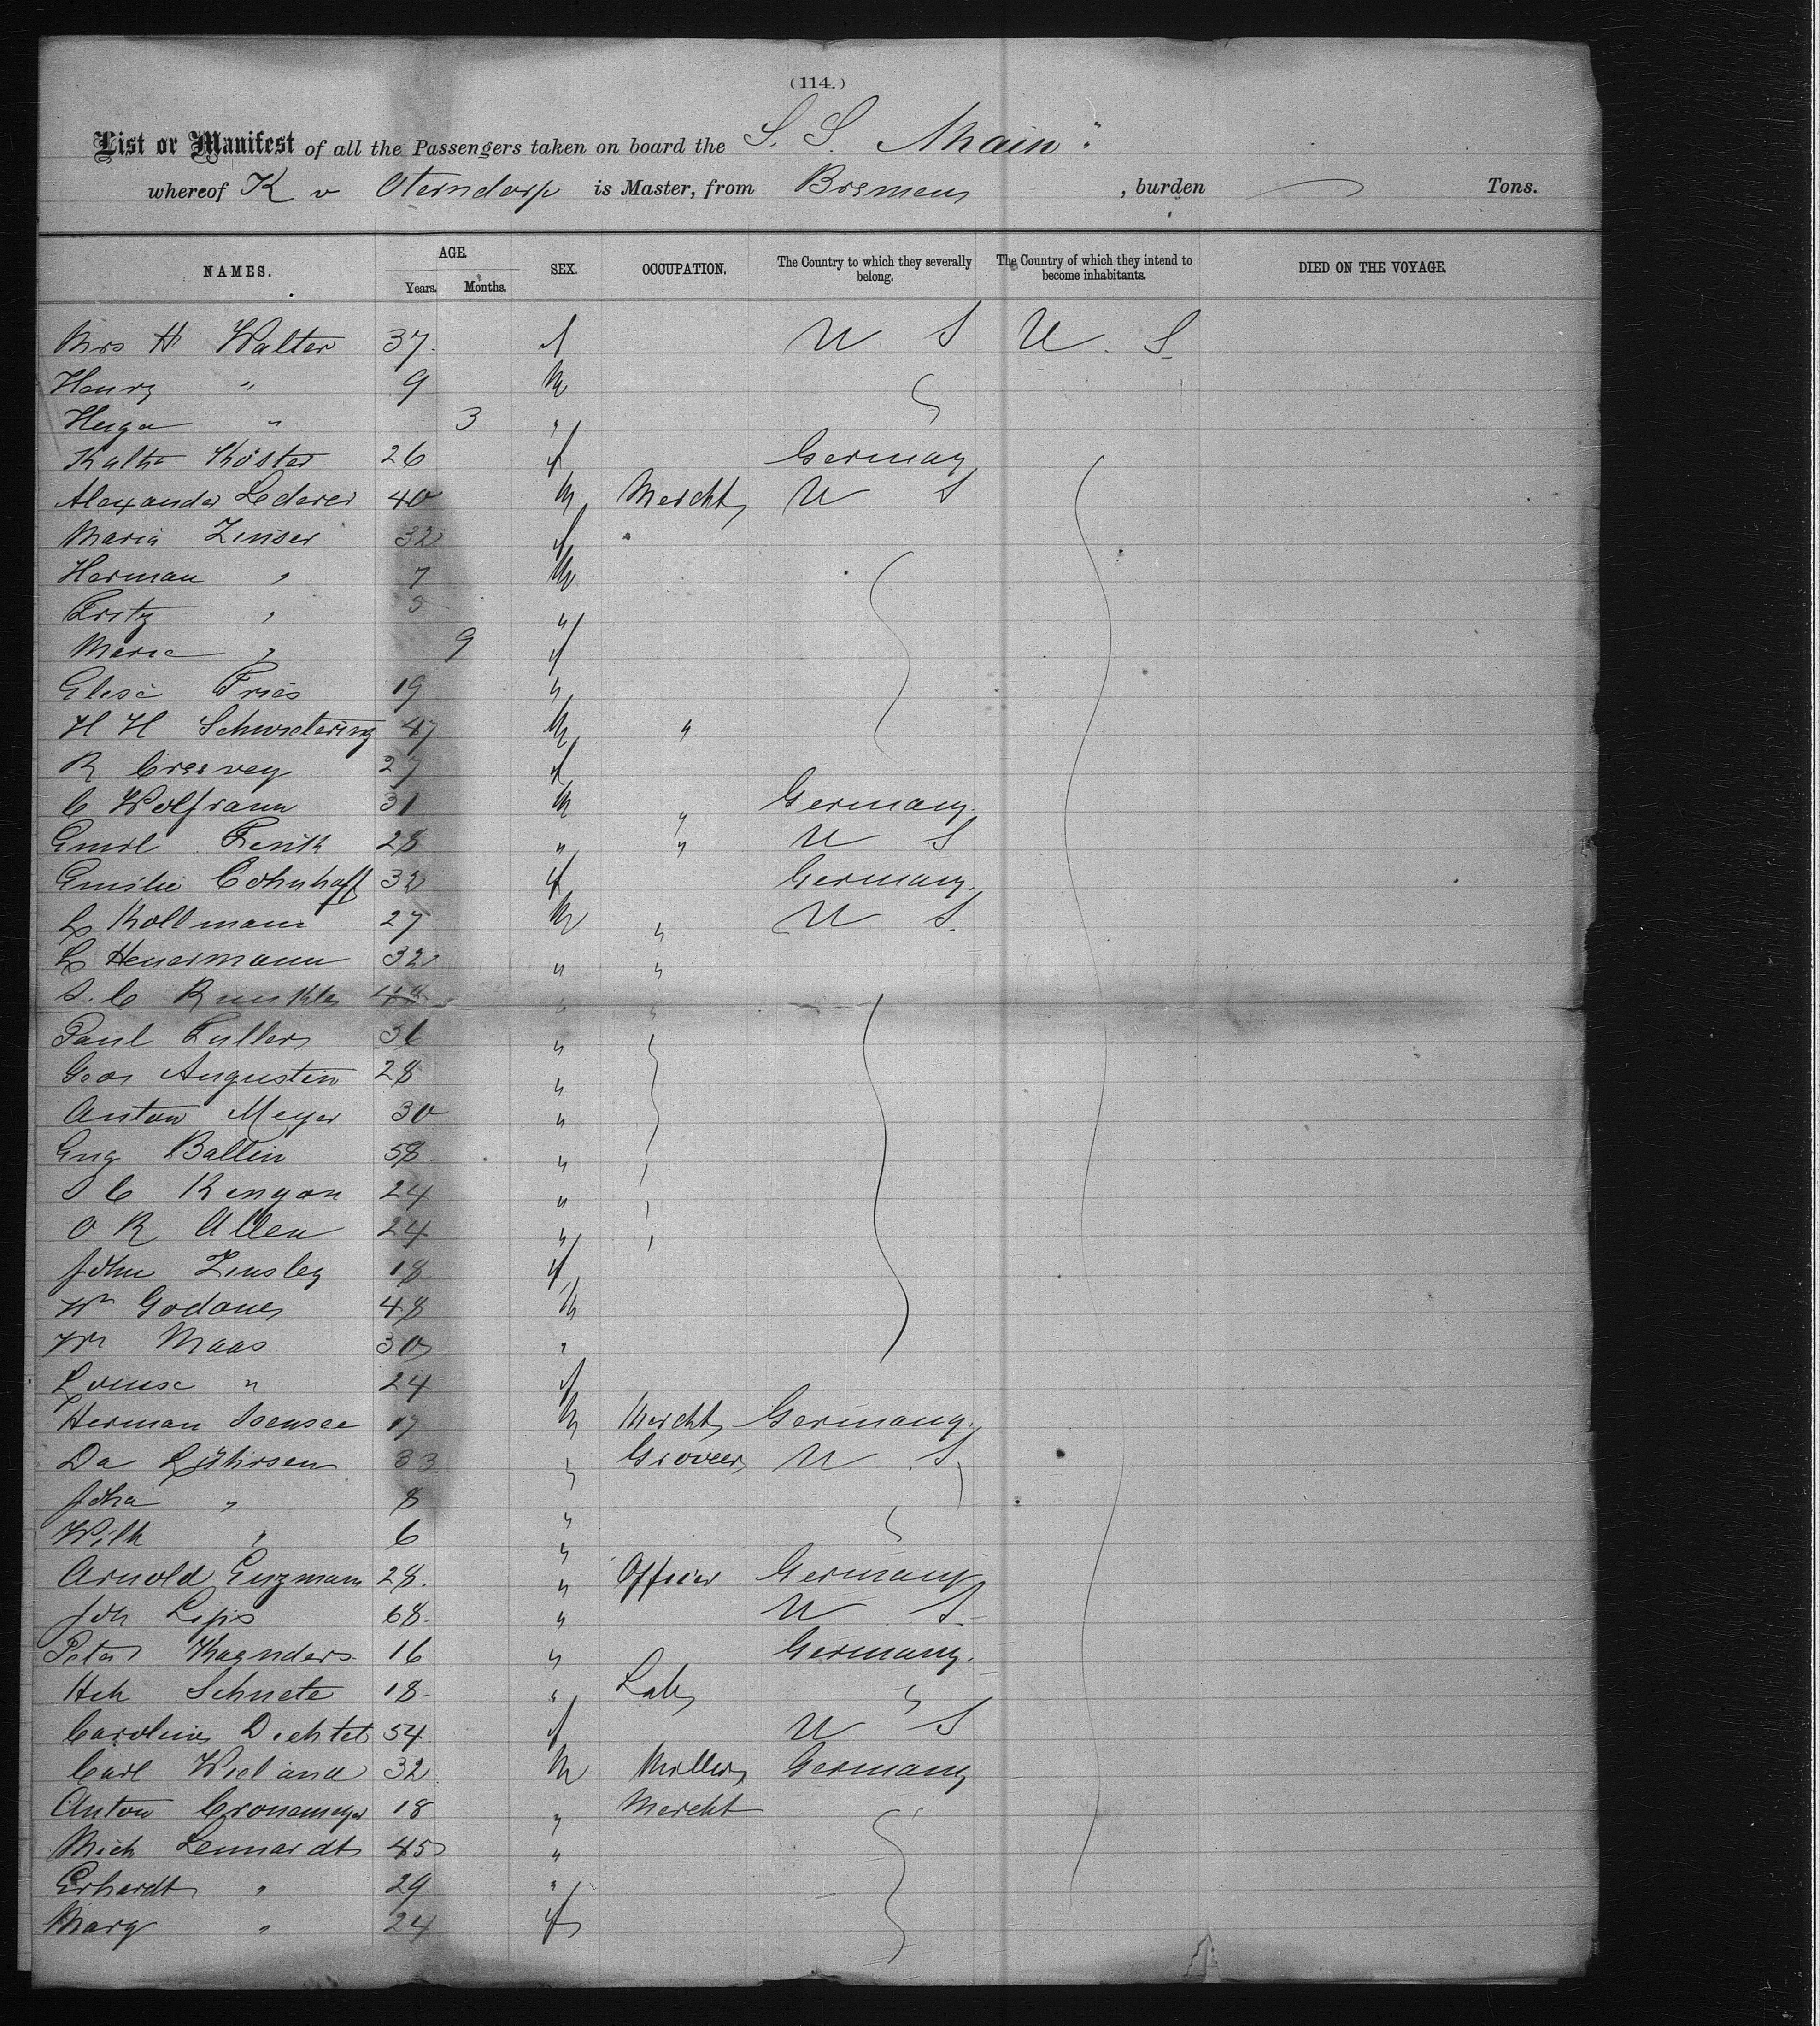 (114.)
List or Manifest of all the Passengers taken on board the S. S. Main"
whereof K v Oterndorp is Master, from Bremen, burden Tons.
NAMES. AGE. SEX. OCCUPATION. The Country to which they severally belong. The Country of which they intend to become inhabitants. DIED ON THE VOYAGE.
Years. Months.
Mrs H Walter 37. f U S U. S
Henry " 9 M
Hugo " 3 "
Köster 26 f Germany
Alexander Lederer 40 M Mercht U S
Maria Zinser 32 f
Herman " 7 M
Fritz " 5 "
Marie " 9 f
Elise Fries 19 "
H H Schwietering 47 M "
R 27 f
C Wolfram 31 M " Germany.
Emil 28 " " U S
Emilie Cohnhoff 32 f Germany.
L Kollmann 27 M " U S.
L Heuermann 32 " "
S. C Runkle 48 " "
Paul Fuller 36 "
Geo Augustin 28 "
Anton Meyer 30 "
Eug Ballin 58 "
S C Kenyon 24 "
O R Allen 24 "
John Zinsley 18 f
Wm 48 M
Wm Maas 30 "
Louise " 24 f
Herman Isensee 17 M Mercht Germany.
Da Lührsen 33 " Grocer U S
Joha " 8 "
Wilh " 6 "
Arnold Enzmann 28. " Officer Germany
Joh 68. " U S
Peter Kaenders 16 " Germany.
Hch Schuete 18. " Lab "
Caroline Dechtel 54 f U S
Carl Wieland 32 M Miller Germany
Anton Cronemeyer 18 " Mercht
Mich Lennardt 45 "
Erhardt " 29 "
Marg " 24 f